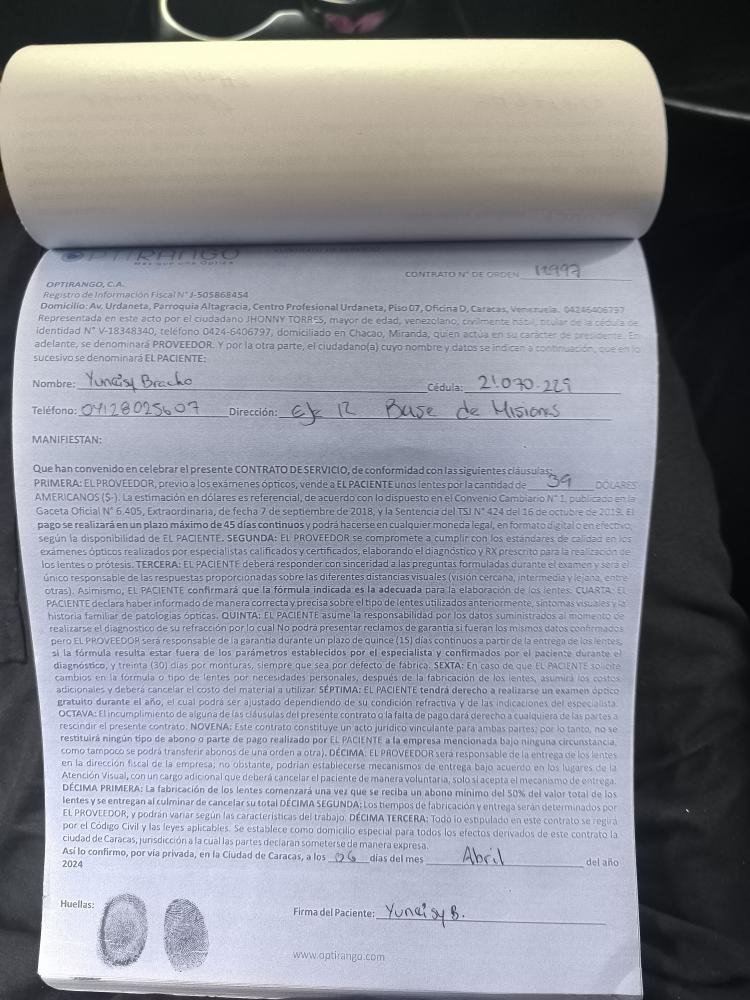 OPTIRANGO
CONTRATO N° DE ORDEN
OPTIRANGO, C.A.
Registro de Información Fiscal N° J-505868454
Domicilio: Av, Urdaneta, Parroquia Altagracia, Centro Profesional Urdaneta, Piso 07, Oficina D, Caracas, Venezuela. 04246406797
Representada en este acto por el ciudadano JHONNY TORRES, mayor de edad, venezolano, civilmente hábil, titular de la cédula de
identidad N° V-18348340, teléfono 0424-6406797, domiciliado en Chacao, Miranda, quien actúa en su carácter de presidente. En
adelante, se denominará PROVEEDOR. Y por la otra parte, el ciudadano(a) cuyo nombre y datos se indican a continuación, que en lo
sucesivo se denominará EL PACIENTE:
Nombre: Yuneisy Bracho Cédula: 21.070.229
Teléfono: 04128025607 Dirección: Eje 12 Base de Misiones
MANIFIESTAN:
Que han convenido en celebrar el presente CONTRATO DE SERVICIO, de conformidad con las siguientes cláusulas:
PRIMERA: EL PROVEEDOR, previo a los exámenes ópticos, vende a EL PACIENTE unos lentes por la cantidad de 39 DÓLARES
AMERICANOS ($-). La estimación en dólares es referencial, de acuerdo con lo dispuesto en el Convenio Cambiario N° 1, publicado en la
Gaceta Oficial N° 6.405, Extraordinaria, de fecha 7 de septiembre de 2018, y la Sentencia del TSJ N° 424 del 16 de octubre de 2019. El
pago se realizará en un plazo máximo de 45 días continuos y podrá hacerse en cualquier moneda legal, en formato digital o en efectivo,
según la disponibilidad de EL PACIENTE. SEGUNDA: EL PROVEEDOR se compromete a cumplir con los estándares de calidad en los
exámenes ópticos realizados por especialistas calificados y certificados, elaborando el diagnóstico y RX prescrito para la realización de
los lentes o prótesis. TERCERA: EL PACIENTE deberá responder con sinceridad a las preguntas formuladas durante el examen y será el
único responsable de las respuestas proporcionadas sobre las diferentes distancias visuales (visión cercana, intermedia y lejana, entre
otras). Asimismo, EL PACIENTE confirmará que la fórmula indicada es la adecuada para la elaboración de los lentes. CUARTA: EL
PACIENTE declara haber informado de manera correcta y precisa sobre el tipo de lentes utilizados anteriormente, síntomas visuales y la
historia familiar de patologías ópticas. QUINTA: EL PACIENTE asume la responsabilidad por los datos suministrados al momento de
realizarse el diagnostico de su refracción por lo cual No podrá presentar reclamos de garantía si fueran los mismos datos confirmados
pero EL PROVEEDOR será responsable de la garantía durante un plazo de quince (15) días continuos a partir de la entrega de los lentes,
si la fórmula resulta estar fuera de los parámetros establecidos por el especialista y confirmados por el paciente durante el
diagnóstico, y treinta (30) días por monturas, siempre que sea por defecto de fábrica. SEXTA: En caso de que EL PACIENTE solicite
cambios en la fórmula o tipo de lentes por necesidades personales, después de la fabricación de los lentes, asumirá los costos
adicionales y deberá cancelar el costo del material a utilizar. SÉPTIMA: EL PACIENTE tendrá derecho a realizarse un examen óptico
gratuito durante el año, el cual podrá ser ajustado dependiendo de su condición refractiva y de las indicaciones del especialista.
OCTAVA: El incumplimiento de alguna de las cláusulas del presente contrato o la falta de pago dará derecho a cualquiera de las partes a
rescindir el presente contrato. NOVENA: Este contrato constituye un acto jurídico vinculante para ambas partes; por lo tanto, no se
restituirá ningún tipo de abono o parte de pago realizado por EL PACIENTE a la empresa mencionada bajo ninguna circunstancia,
como tampoco se podrá transferir abonos de una orden a otra). DÉCIMA: EL PROVEEDOR será responsable de la entrega de los lentes
en la dirección fiscal de la empresa; no obstante, podrían establecerse mecanismos de entrega bajo acuerdo en los lugares de la
Atención Visual, con un cargo adicional que deberá cancelar el paciente de manera voluntaria, solo si acepta el mecanismo de entrega.
DÉCIMA PRIMERA: La fabricación de los lentes comenzará una vez que se reciba un abono mínimo del 50% del valor total de los
lentes y se entregan al culminar de cancelar su total DÉCIMA SEGUNDA: Los tiempos de fabricación y entrega serán determinados por
EL PROVEEDOR, y podrán variar según las características del trabajo. DÉCIMA TERCERA: Todo lo estipulado en este contrato se regirá
por el Código Civil y las leyes aplicables. Se establece como domicilio especial para todos los efectos derivados de este contrato la
ciudad de Caracas, jurisdicción a la cual las partes declaran someterse de manera expresa.
Así lo confirmo, por vía privada, en la Ciudad de Caracas, a los 06 días del mes Abril del año
2024
Huellas:
Firma del Paciente: Yuneisy B.
www.optirango.com